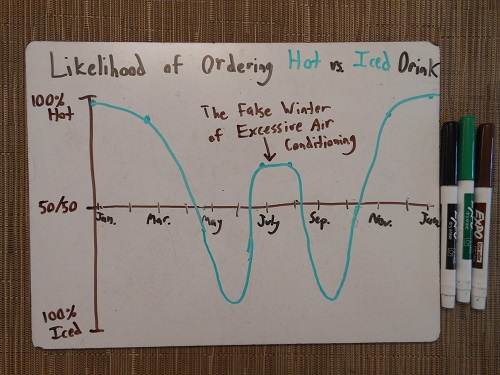 Likelihood of Ordering Hot vs. Iced Drink
100%
Hot
The False Winter
of Excessive Air
Conditioning
50/50
Jan. Mar. May July Sep. Nov. Jan.
100%
Iced
EXPO